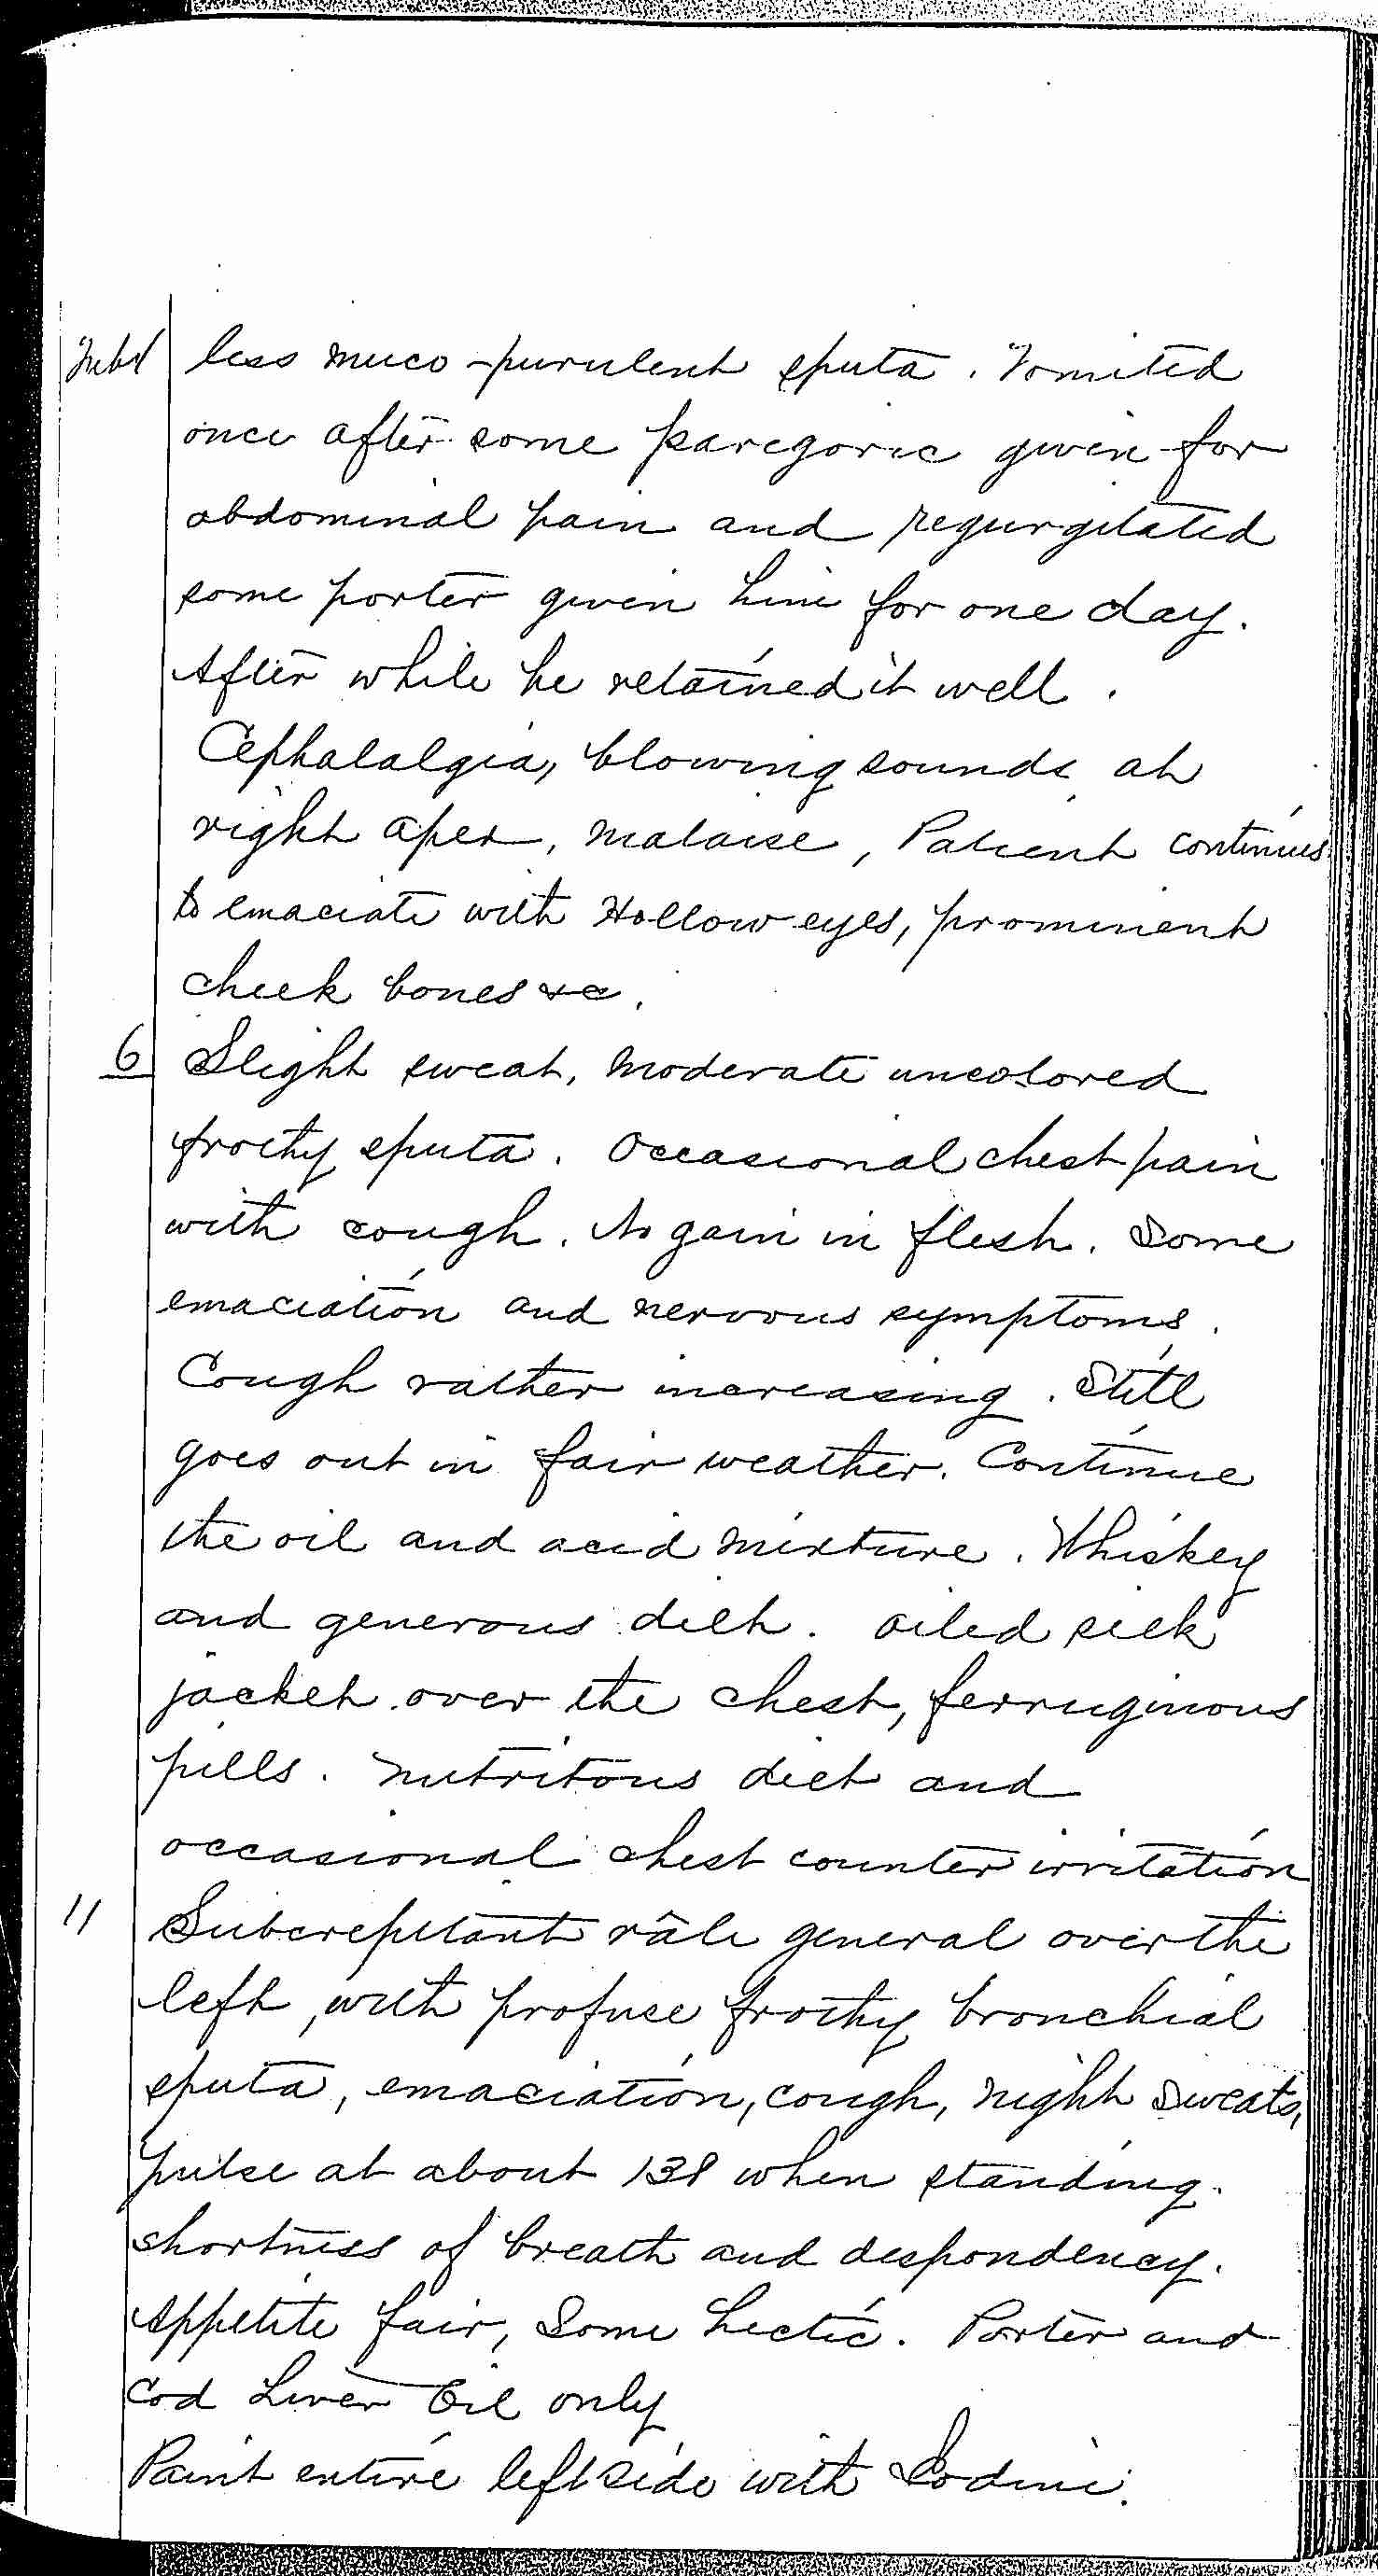 Feb 1 less muco-purulent sputa. Vomited
once after some paregoric given for
abdominal pain and regurgitated
some porter given him for one day.
After while he retained it well.
Cephalalgia, blowing sounds at
right apex, malaise, Patient continues
to emaciate with Hollow eyes, prominent
cheek bones &c.
6 Slight sweat, moderate uncolored
frothy sputa. Occasional chest pain
with cough. No gain in flesh. Some
emaciation and nervous symptoms.
Cough rather increasing. Still
goes out in fair weather. Continue
the oil and acid mixture. Whiskey
and generous diet. oiled silk
jacket over the chest, ferruginous
pills. nutritous diet and
occasional chest counter irritation
11 Subcrepitant râle general over the
left, with profuse frothy bronchial
sputa, emaciation, cough, night sweats,
pulse at about 138 when standing.
shortness of breath and despondency.
Appetite fair, Some hectic. Porter and
Cod Liver Oil only
Paint entire left side with Iodine.